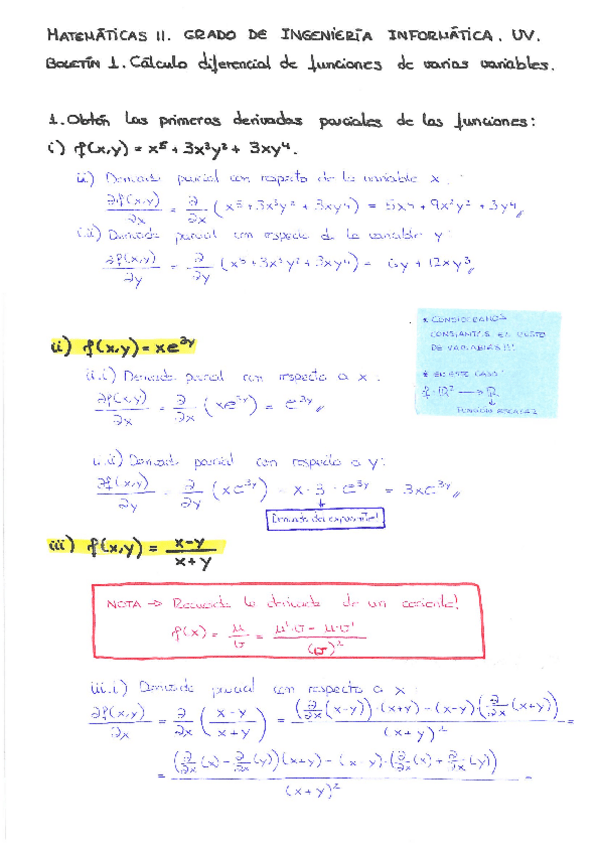 MATEMÁTICAS II. GRADO DE INGENIERÍA INFORMÁTICA. UV.
BOLETÍN 1. Cálculo diferencial de funciones de varias variables.
1. Obtén las primeras derivadas parciales de las funciones:
i) f(x,y) = x⁵ + 3x³y² + 3xy⁴.
i.i) Derivada parcial con respecto de la variable x :
∂f(x,y)/∂x = ∂/∂x (x⁵ + 3x³y² + 3xy⁴) = 5x⁴ + 9x²y² + 3y⁴
i.ii) Derivada parcial con respecto de la variable y:
∂f(x,y)/∂y = ∂/∂y (x⁵ + 3x³y² + 3xy⁴) = 6y + 12xy³
* CONSIDERANDO
CONSTANTES EL RESTO
DE VARIABLES!!!
ii) f(x,y) = xe³ʸ
* EN ESTE CASO:
ii.i) Derivada parcial con respecto a x .
f: ℝ² → ℝ
∂f(x,y)/∂x = ∂/∂x (xe³ʸ) = e³ʸ
FUNCIÓN ESCALAR
ii.ii) Derivada parcial con respecto a y:
∂f(x,y)/∂y = ∂/∂y (xe³ʸ) = x · 3 · e³ʸ = 3xe³ʸ
Derivada del exponente!
iii) f(x,y) = x-y/x+y
NOTA → Recuerda la derivada de un cociente!
f(x) = u/v = u'·v - u·v'/(v)²
iii.i) Derivada parcial con respecto a x :
∂f(x,y)/∂x = ∂/∂x (x-y/x+y) = (∂/∂x (x-y))·(x+y) - (x-y)(∂/∂x (x+y))/(x+y)² =
= (∂/∂x (x) - ∂/∂x (y))(x+y) - (x-y)·(∂/∂x (x) + ∂/∂x (y))/(x+y)² =